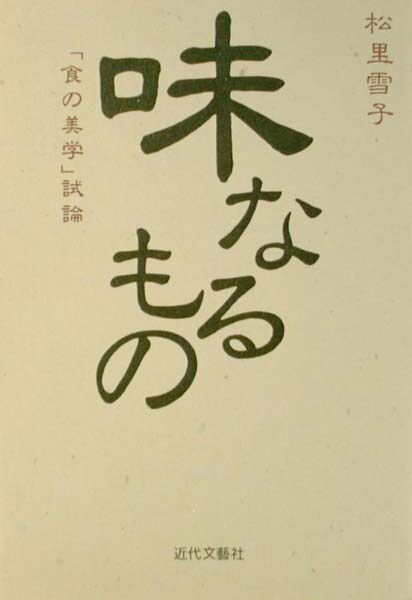 松里雪子
味なる
もの
「食の美学」試論
近代文藝社